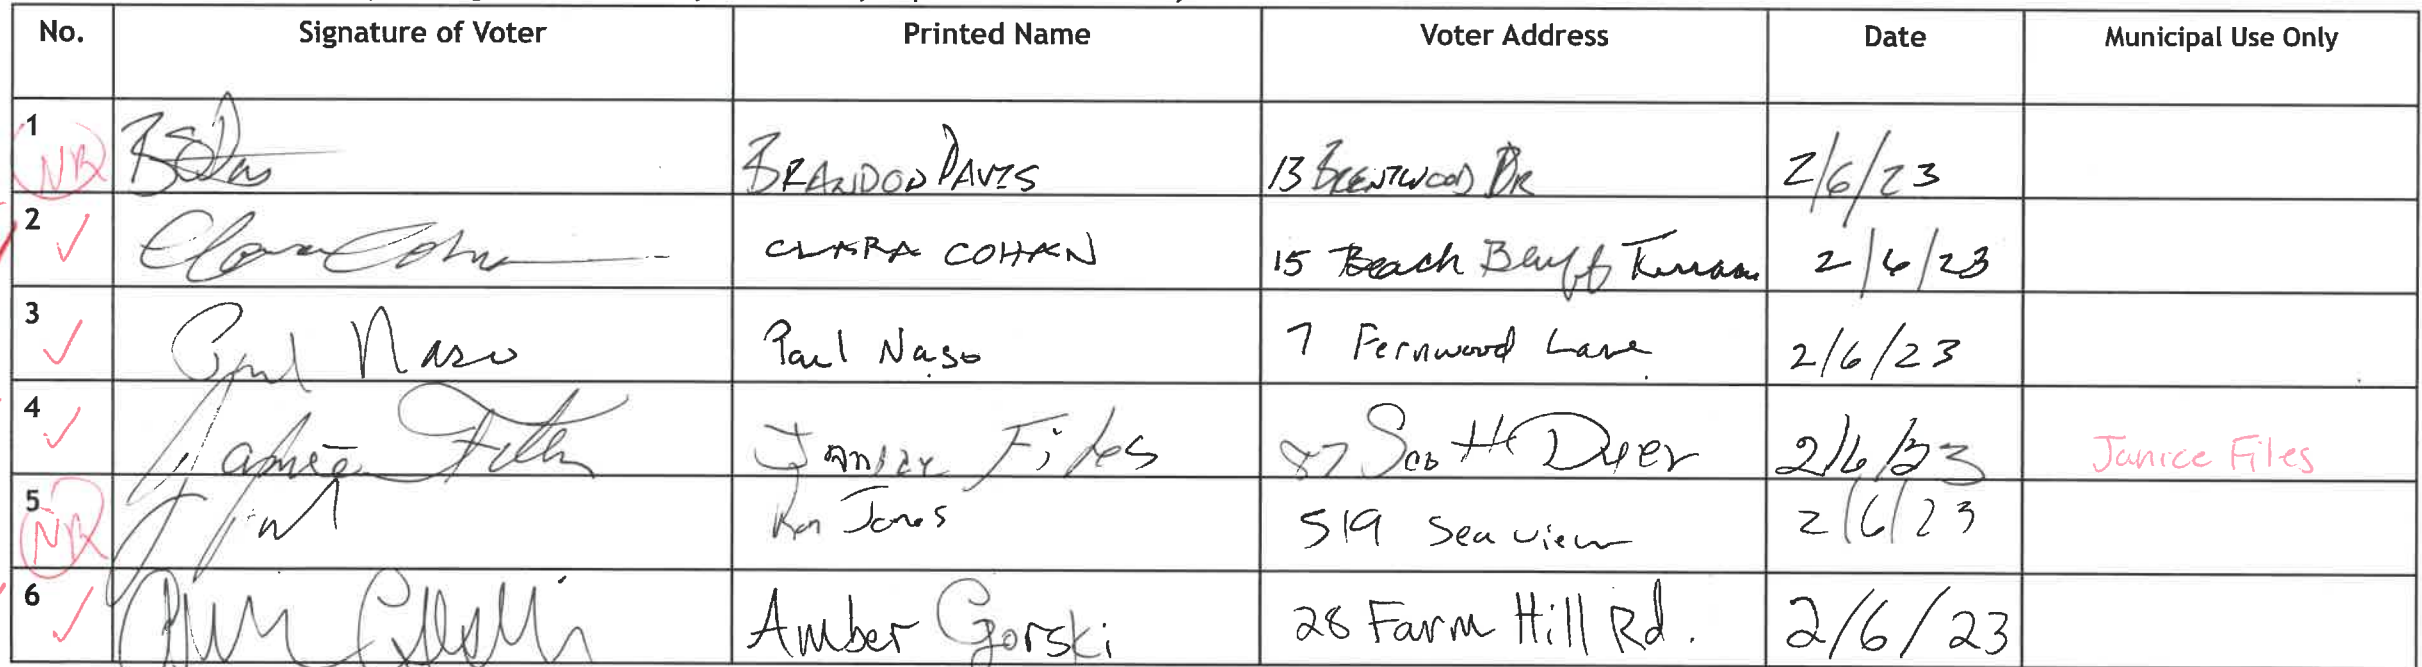 No. Signature of Voter Printed Name Voter Address Date Municipal Use Only
1 NR BRANDON DAVIS 13 BRENTWOOD DR 2/6/23
2 ✓ Clara Cohan CLARA COHAN 15 Beach Bluff Terrace 2/6/23
3 ✓ Paul Naso Paul Naso 7 Fernwood Lane 2/6/23
4 ✓ Janice Files Janice Files 87 Scott Dyer 2/6/23 Janice Files
5 NR Ken Jones 519 Sea view 2/6/23
6 ✓ Amber Gorski 28 Farm Hill Rd. 2/6/23